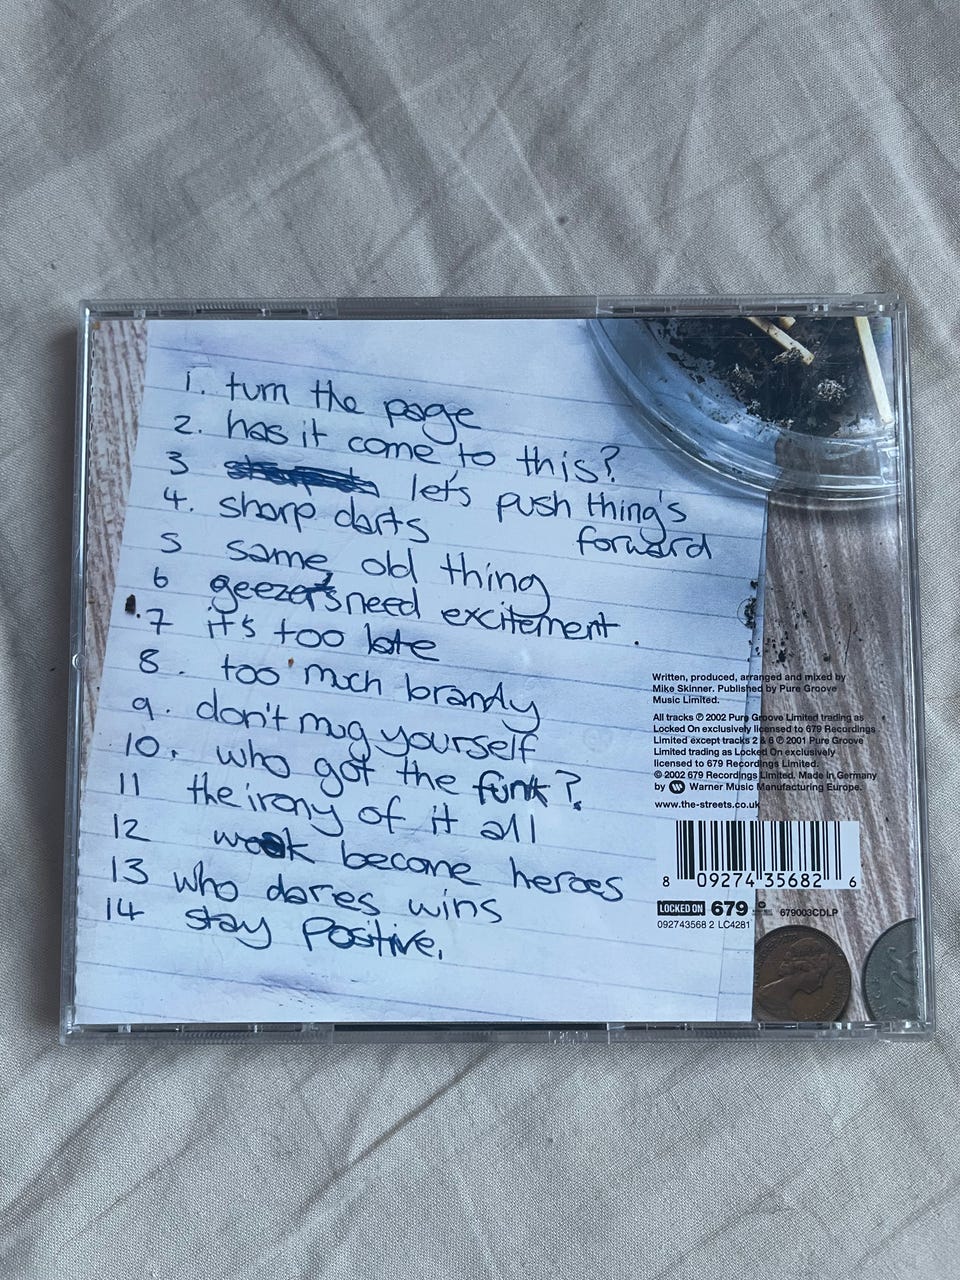 1. turn the page
2. has it come to this?
3 let's push thing's
forward
4. sharp darts
5 same old thing
6 geezer's need excitement
7 it's too late
8. too much brandy
9. don't mug yourself
10. who got the funk?
11 the irony of it all
12 weak become heroes
13 who dares wins
14 stay positive.
Written, produced, arranged and mixed by
Mike Skinner. Published by Pure Groove
Music Limited.
All tracks ℗ 2002 Pure Groove Limited trading as
Locked On exclusively licensed to 679 Recordings
Limited except tracks 2 & 6 ℗ 2001 Pure Groove
Limited trading as Locked On exclusively
licensed to 679 Recordings Limited.
© 2002 679 Recordings Limited. Made in Germany
by Warner Music Manufacturing Europe.
www.the-streets.co.uk
8 09274 35682 6
LOCKED ON 679 679003CDLP
092743568 2 LC4281